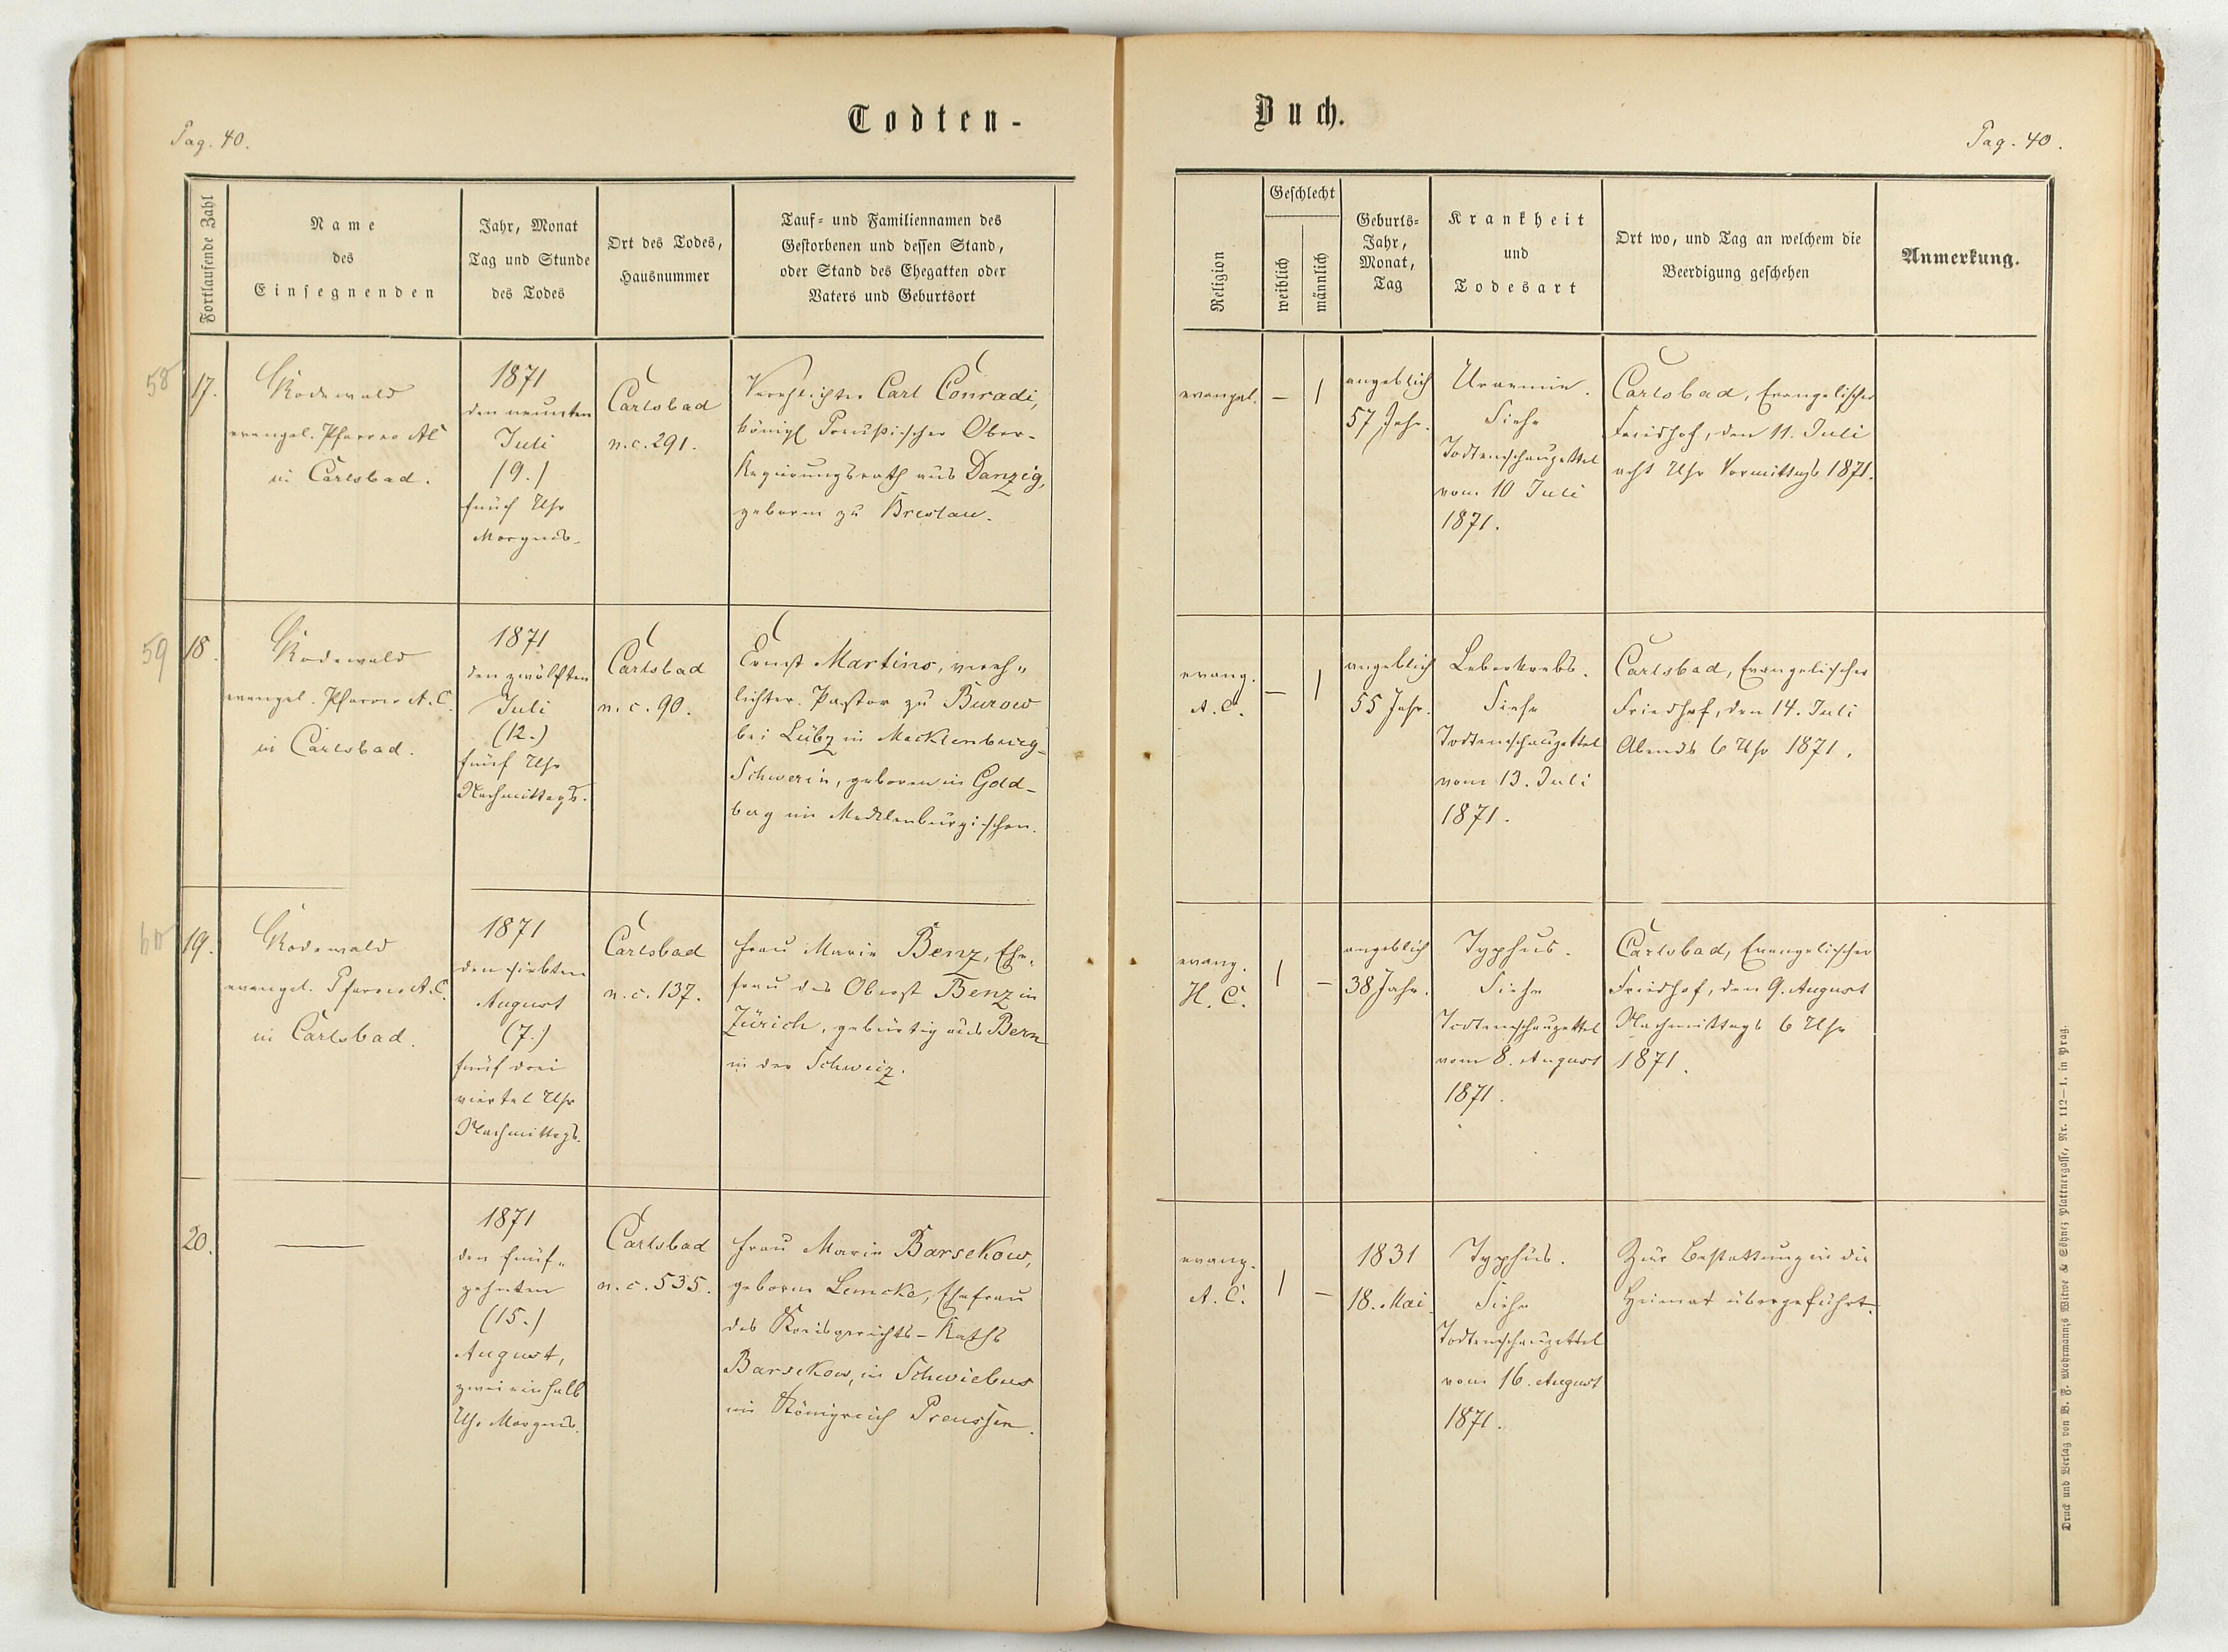 Todten-
Buch.
Pag. 40.
Pag. 40.
Fortlaufende Zahl
Name
des
Einsegnenden
Jahr, Monat
Tag und Stunde
des Todes
Ort des Todes,
Hausnummer
Tauf- und Familiennamen des
Gestorbenen und dessen Stand,
oder Stand des Ehegatten oder
Vaters und Geburtsort
Religion
Geschlecht
weiblich
männlich
Geburts-
Jahr,
Monat,
Tag
Krankheit
und
Todesart
Ort wo, und Tag an welchem die
Beerdigung geschehen
Anmerkung.
58
17.
Rodewald
evangel. Pfarrer AC
in Carlsbad.
1871
den neunten
Juli
(9.)
fünf Uhr
Morgends.
Carlsbad
n.c. 291.
Verehlichter Carl Conradi,
königl Preußischer Ober-
Regierungsrath aus Danzig,
geboren zu Breslau.
evangel.
– 1
angeblich
57 Jahr.
Uraemie.
Siehe
Todtenschauzettel
vom 10 Juli
1871.
Carlsbad, Evangelischer
Friedhof, den 11. Juli
acht Uhr Vormittags 1871.
59
18.
Rodewald
evangel. Pfarrer A.C.
in Carlsbad.
1871
den zwölften
Juli
(12.)
fünf Uhr
Nachmittags.
Carlsbad
n.c. 90.
Ernst Martins, vereh„
lichter. Pastor zu Burow
bei Lübz in Mecklenburg-
Schwerin, geboren in Gold-
berg im Mecklenburgischen.
evang.
A.C.
– 1
angeblich
55 Jahr.
Leberkrebs.
Siehe
Todtenschauzettel
vom 13. Juli
1871.
Carlsbad, Evangelischer
Friedhof, den 14. Juli
Abends 6 Uhr 1871.
60
19.
Rodewald
evangel. Pfarrer A.C.
in Carlsbad.
1871
den siebten
August
(7.)
fünf drei
viertel Uhr
Nachmittags.
Carlsbad
n.c. 137.
Frau Marie Benz, Ehe„
frau des Oberst Benz in
Zürich, gebürtig aus Bern
in der Schweiz.
evang.
H.C.
1 –
angeblich
38 Jahr.
Typhus.
Siehe
Todtenschauzettel
vom 8. August
1871.
Carlsbad, Evangelischer
Friedhof, den 9. August
Nachmittags 6 Uhr
1871.
20.
—
1871
den fünf„
zehnten
(15.)
August,
zwei einhalb
Uhr Morgends.
Carlsbad
n.c. 535.
Frau Marie Barsekow,
geborne Lemcke, Ehefrau
des Kreisgerichts-Raths
Barsekow, in Schwiebus
im Königreich Preussen.
evang.
A.C.
1 –
1831
18. Mai
Typhus.
Siehe
Todtenschauzettel
vom 16. August
1871.
Zur Bestattung in die
Heimat übergeführt.
Druck und Verlag von B. F. Mohrmann's Witwe & Söhne; Plattnergasse, Nr. 112—1. in Prag.